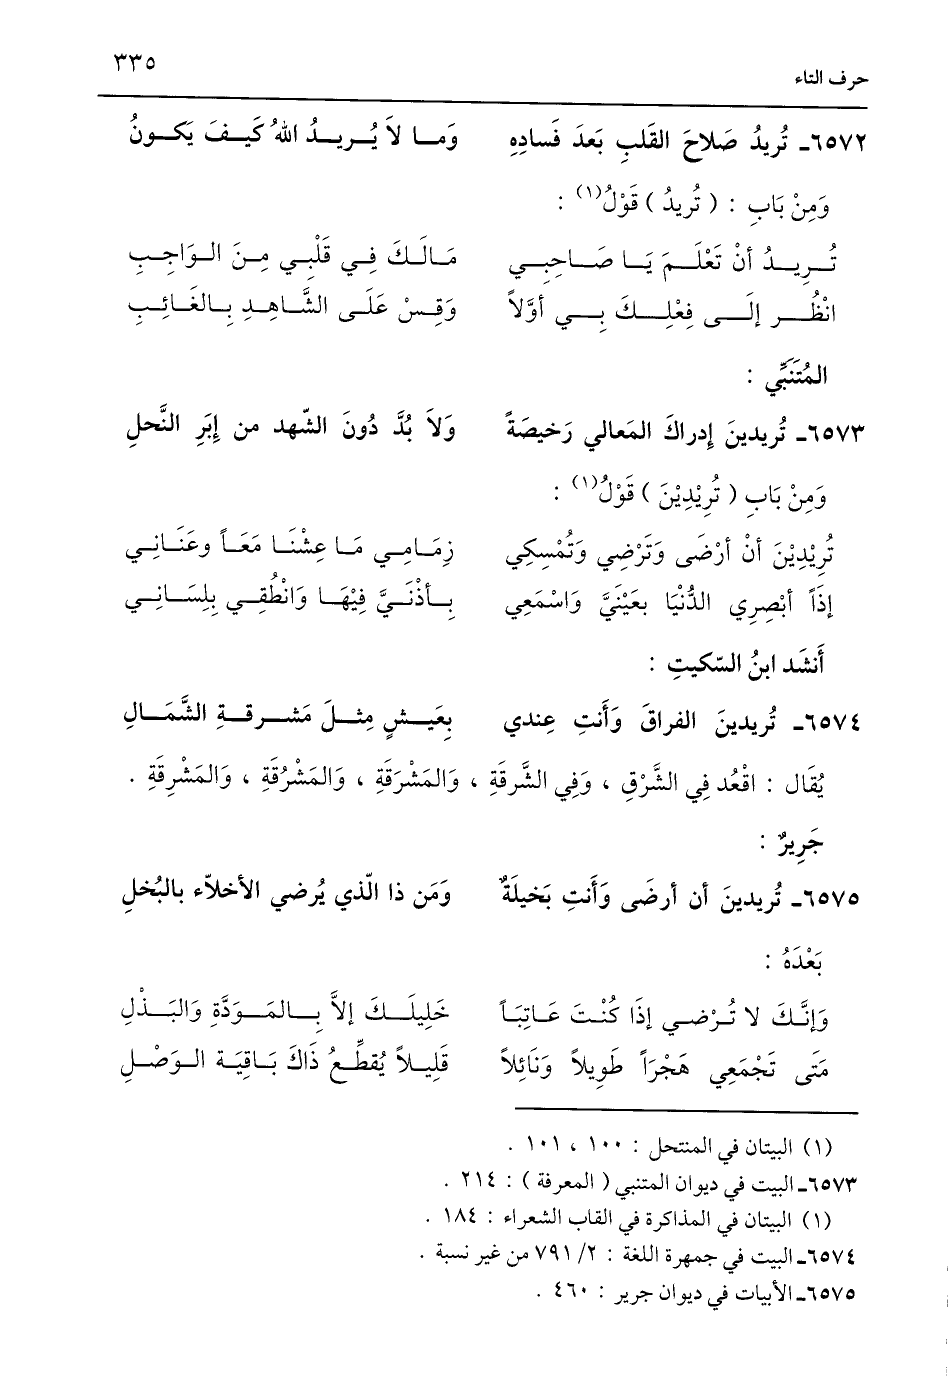 حرف التاء ٣٣٥
٦٥٧٢ـ تُريدُ صَلاحَ القَلبِ بَعدَ فَسادِهِ وَمـا لاَ يُـريـدُ اللهُ كَيـفَ يَكـونُ
وَمِنْ بَابِ : ( تُرِيدُ ) قَوْلُ(١) :
تُـرِيـدُ أنْ تَعْلَـمَ يَـا صَـاحِبِـي مَـالَـكَ فِـي قَلْبِـي مِـنَ الـوَاجِـبِ
انْظُـر إلَـى فِعْلِـكَ بِـي أوَّلاً وَقِـسْ عَلَـى الشَّـاهِـدِ بِـالغَـائِـبِ
المُتَنَبِّي :
٦٥٧٣ـ تُريدينَ إدراكَ المَعالي رَخيصَةً وَلاَ بُدَّ دُونَ الشّهد من إبَرِ النَّحلِ
وَمِنْ بَابِ ( تُرِيْدِيْنَ ) قَوْلُ(١) :
تُرِيْدِيْنَ أنْ أرْضَى وَتَرْضِي وَتُمْسِكِي زِمَـامِـي مَـا عِشْنَـا مَعَـاً وعَنَـانِـي
إذَاً أبْصِرِي الدُّنْيَا بعَيْنَيَّ وَاسْمَعِي بِـأذْنَـيَّ فِيْهَـا وَانْطُقِـي بِلِسَـانِـي
أَنشَد ابنُ السّكيتِ :
٦٥٧٤ـ تُريدينَ الفراقَ وَأَنتِ عِندي بِعَيـشٍ مِثـلَ مَشـرقـةِ الشَّمـالِ
يُقَال : اقْعُد فِي الشَّرْقِ ، وَفِي الشَّرقَةِ ، وَالمَشْرَقَةِ ، وَالمَشْرُقَةِ ، وَالمَشْرِقَةِ .
جَرِيرٌ :
٦٥٧٥ـ تُريدينَ أن أرضَى وَأَنتِ بَخيلَةٌ وَمَن ذا الّذي يُرضي الأخلاّء بالبُخلِ
بَعْدَهُ :
وَإنَّـكَ لا تُـرْضـي إذَا كُنْـتَ عَـاتِبَـاً خَلِيلَـكَ إلاَّ بِـالمَـوَدَّةِ وَالبَـذْلِ
مَتَى تَجْمَعِي هَجْرَاً طَوِيلاً وَنَائِلاً قَلِيـلاً يُقطِّـعُ ذَاكَ بَـاقِيَـة الـوَصْـلِ
(١) البيتان في المنتحل : ١٠٠ ، ١٠١ .
٦٥٧٣ـ البيت في ديوان المتنبي ( المعرفة ) : ٢١٤ .
(١) البيتان في المذاكرة في القاب الشعراء : ١٨٤ .
٦٥٧٤ـ البيت في جمهرة اللغة : ٢/ ٧٩١ من غير نسبة .
٦٥٧٥ـ الأبيات في ديوان جرير : ٤٦٠ .